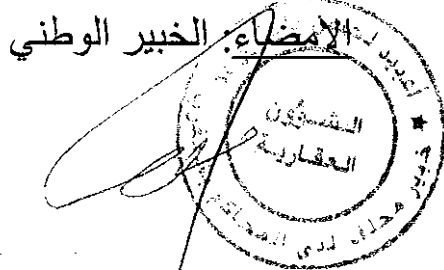 الإمضاء: الخبير الوطني
الشؤون
العقارية
خبير محلف لدى المحاكم